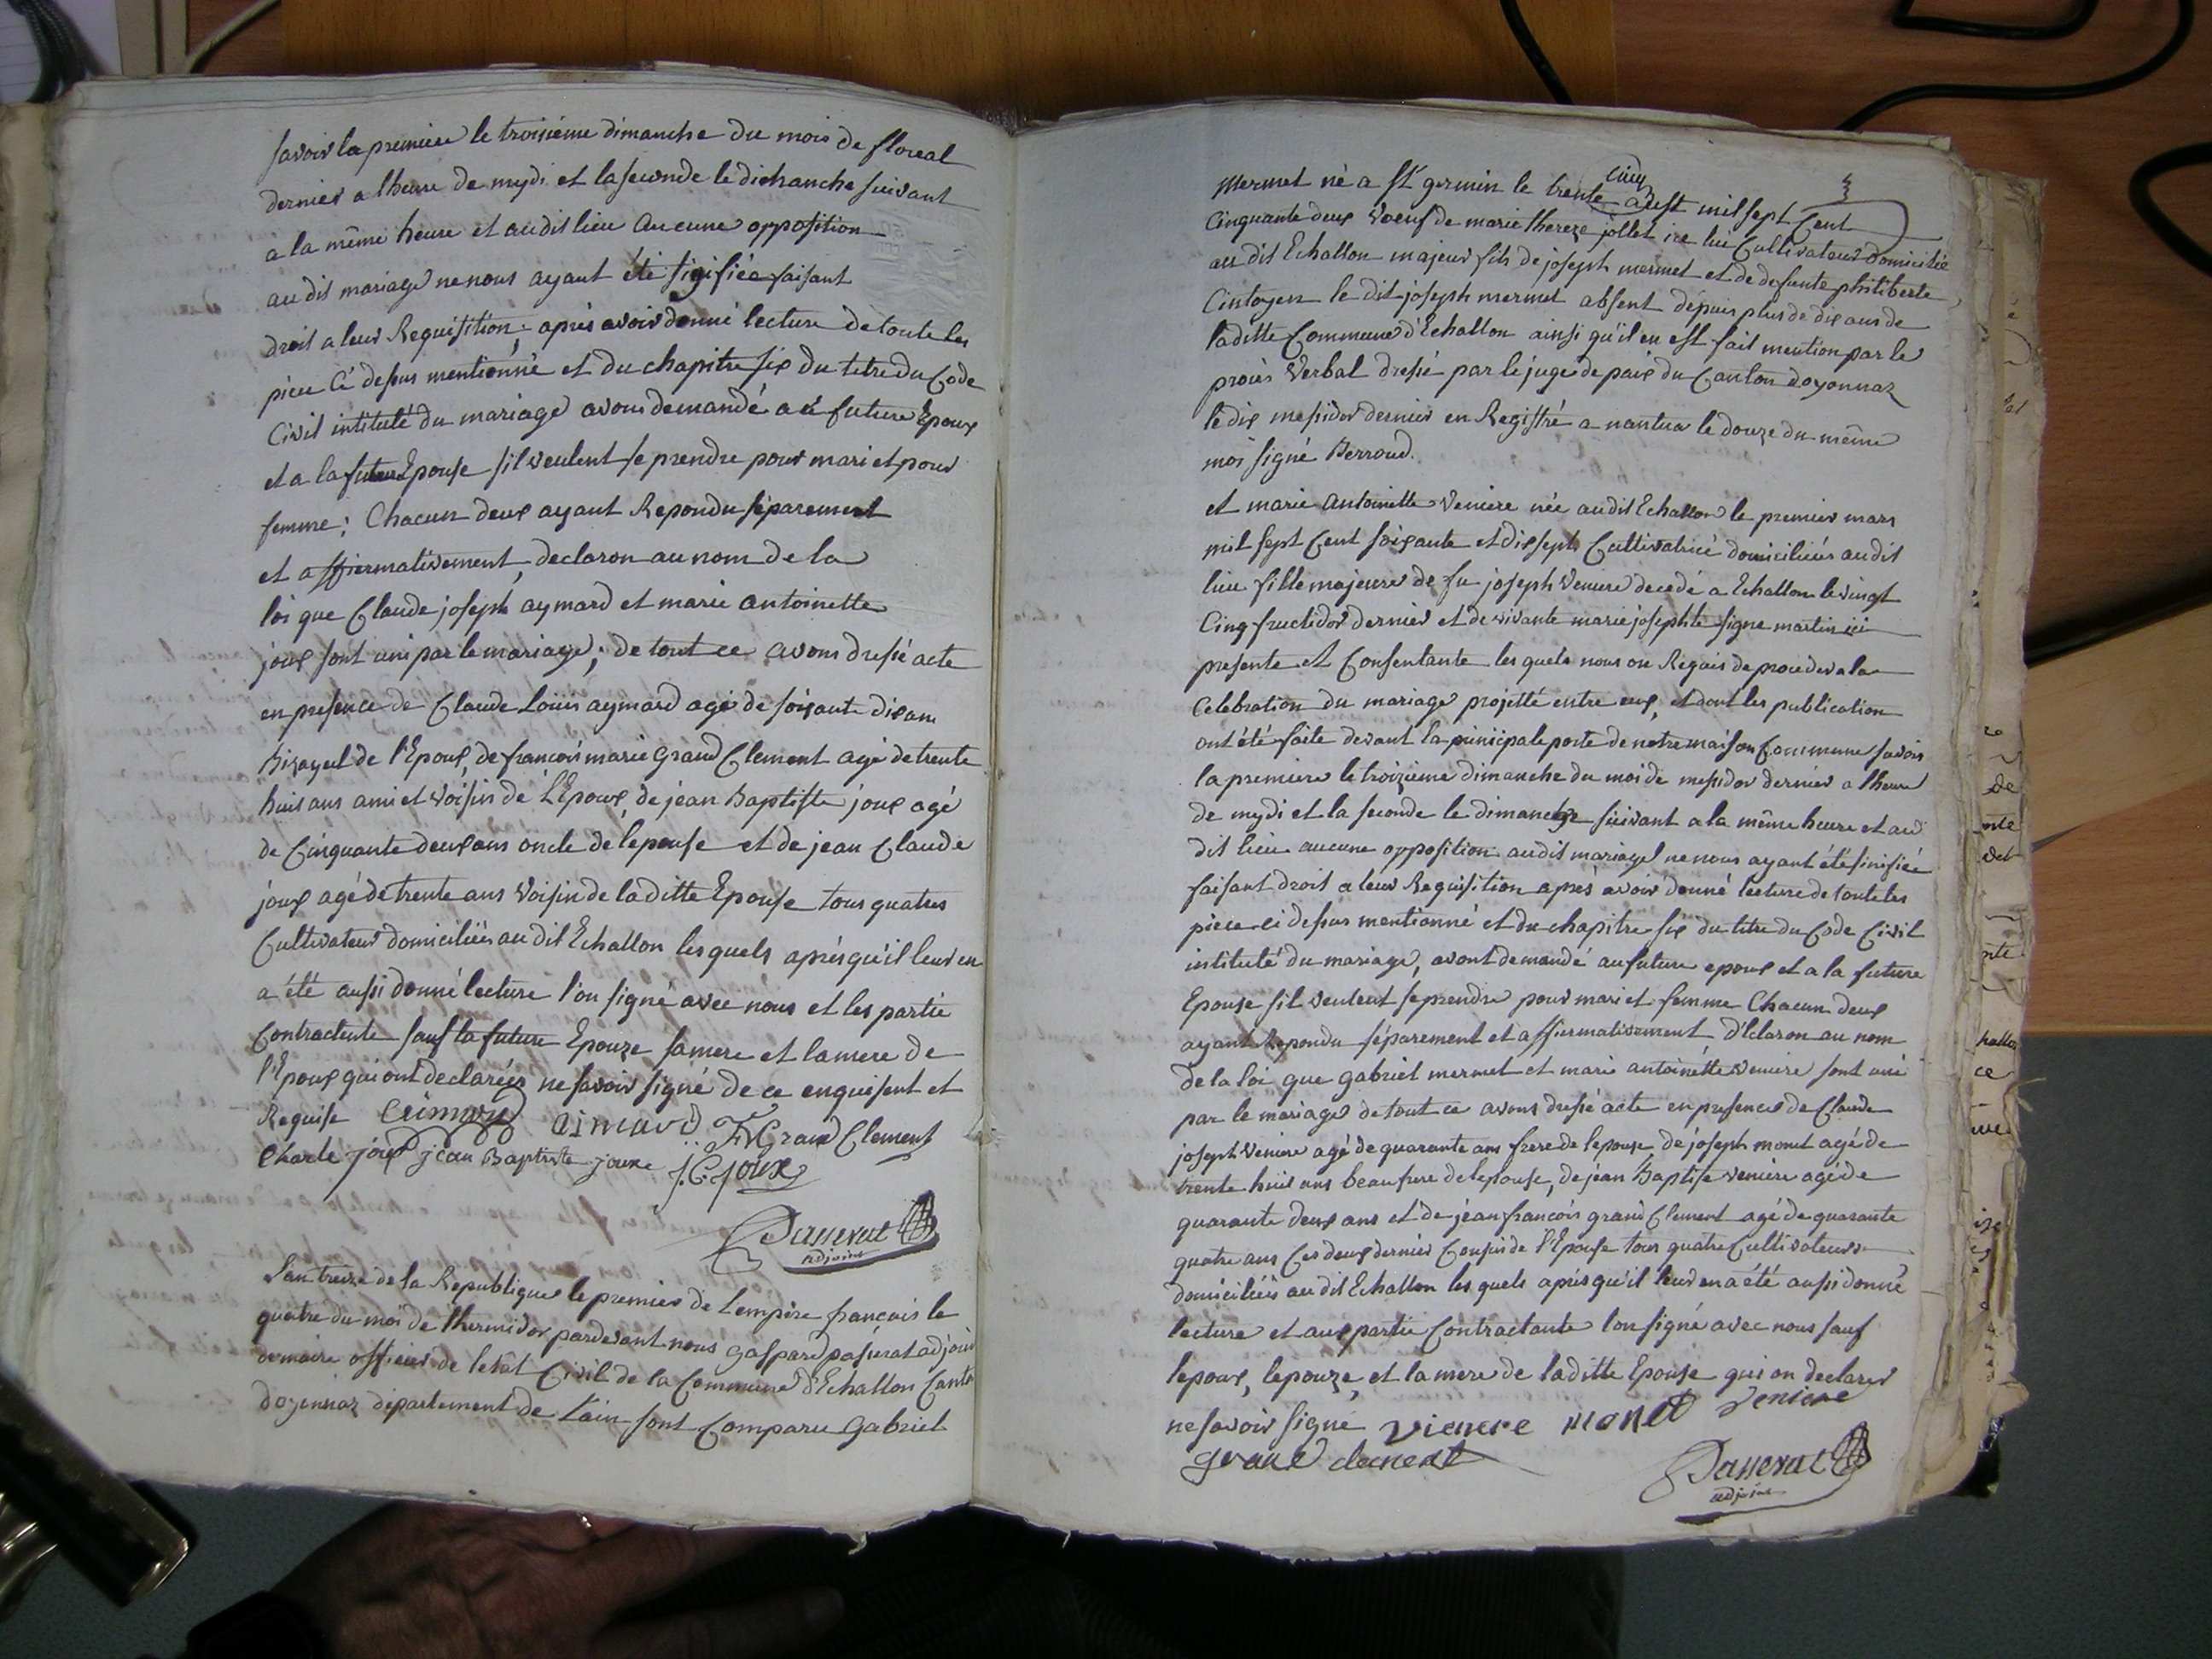 savoir la premiere le troisiéme dimanche du mois de floreal
dernier a lheure de mydi et la seconde le dichanche suivant
a la même heure et audit lieu aucune opposition
au dit mariage ne nous ayant été sigifiée faisant
droit a leur Requisition; aprés avoir donné lecture de toute les
piece cé desus mentionné et du chapitre six du titre du Code
Civil intitulé du mariage avons demandé au future Epoux
et a la future Epouse sil veulent se prendre pour mari et pour
femme; Chacun deux ayant Repondu séparement
et affiermativement, declaron au nom de la
loi que Claude joseph aymard et marie antoinette
joux sont uni par le mariage; de tout ce avons dressé acte
en presence de Claude Loüis aymard agé de soixante dix ans
bisayeul de l'Epoux, de francois marie grand Clement agé de trente
huit ans ami et voisin de L'Epoux, de jean Baptiste joux agé
de Cinquante deux ans oncle de l'epouse et de jean Claude
joux agé de trente ans Voisin de laditte Epouse tous quatres
Cultivateur domiciliés au dit Echallon lesquels aprés qu'il leur en
a été aussi donné lecture l'on signé avec nous et les partie
Contractente sauf la future Epouze sa mere et la mere de
l'Epoux qui ont declarées ne savoir signé de ce enquisent et
Requise aimard FM Grand Clement
Charle joux jean Baptiste joux J.C. joux
Passerat
adjoint
Lan treize de la Republique le premier de Lempire francais le
quatre du moi de thermidor pardevant nous gaspard paserat adjoin
du maire officier de letat Civil de la Commune d'Echallon Canto
doyonnaz departement de Lain sont Comparu Gabriel
3
mermet né a St germin le trente cinq aust mil sept Cent
Cinquante deux Voeuf de marie thereze jollet Cultivateur domicilié
au dit Echallon majeur fils de joseph mermet et de defunte philiberte
Cintoyen le dit joseph mermet absent dépuis plus de dix ans de
laditte Commune d'Echallon ainsi qu'il en est fait mention par le
procès Verbal dressé par le juge de paix du Canton doyonnaz
le dix messidor dernier en Registré a nantua le douze du même
moi signé Berroud.
et marie antoinette Veniere née audit Echallon le premier mars
mil sept Cent soixante et dix sept Cultivatrice domiciliée au dit
lieu fille majeure de fu joseph Veniere decedé a Echallon le vingt
Cinq fructidor dernier et de vivante marie josephte signe martin ici
presente et Consentante les quels nous on Requis de proceder a la
Celebration du mariage projetté entre eux, et dont les publication
ont été faite devant la principale porte de notre maison Commune savoir
la premiere le troizieme dimanche du moi de messidor dernier a lheure
de mydi et la seconde le dimanche suivant a la même heure et au
dit lieu aucune opposition au dit mariage ne nous ayant été sinifiée
faisant droit a leur Requisition aprés avoir donné lecture de toute les
piece ci desus mentionné et du chapitre six du titre du Code Civil
intitulé du mariage, avont demandé au future epoux et a la future
Epouse sil veulent se prendre pour mari et femme Chacun deux
ayant Repondu séparement et affiermativement d'Eclaron au nom
de la loi que gabriel mermet et marie antoinétte Veniere sont uni
par le mariage de tout ce avons dressé acte en presence de Claude
joseph Veniere agé de quarante ans frere de lepouse, de joseph monet agé de
trente huit ans beau frere de lepouse, de jean Baptiste Veniere agé de
quarante deux ans et de jean francois grand Clement agé de quarante
quatre ans Ces deux dernier Cousin de l'Epouse tous quatre Cultivateurs
domiciliés au dit Echallon les quels aprés qu'il leur en a été aussi donné
lecture et aux partie Contractante l'on signé avec nous sauf
lepoux, lepouze, et la mere de laditte Epouse qui on declarer
ne savoir signé vienere monet Veniere
grand clement Passerat
adjoint